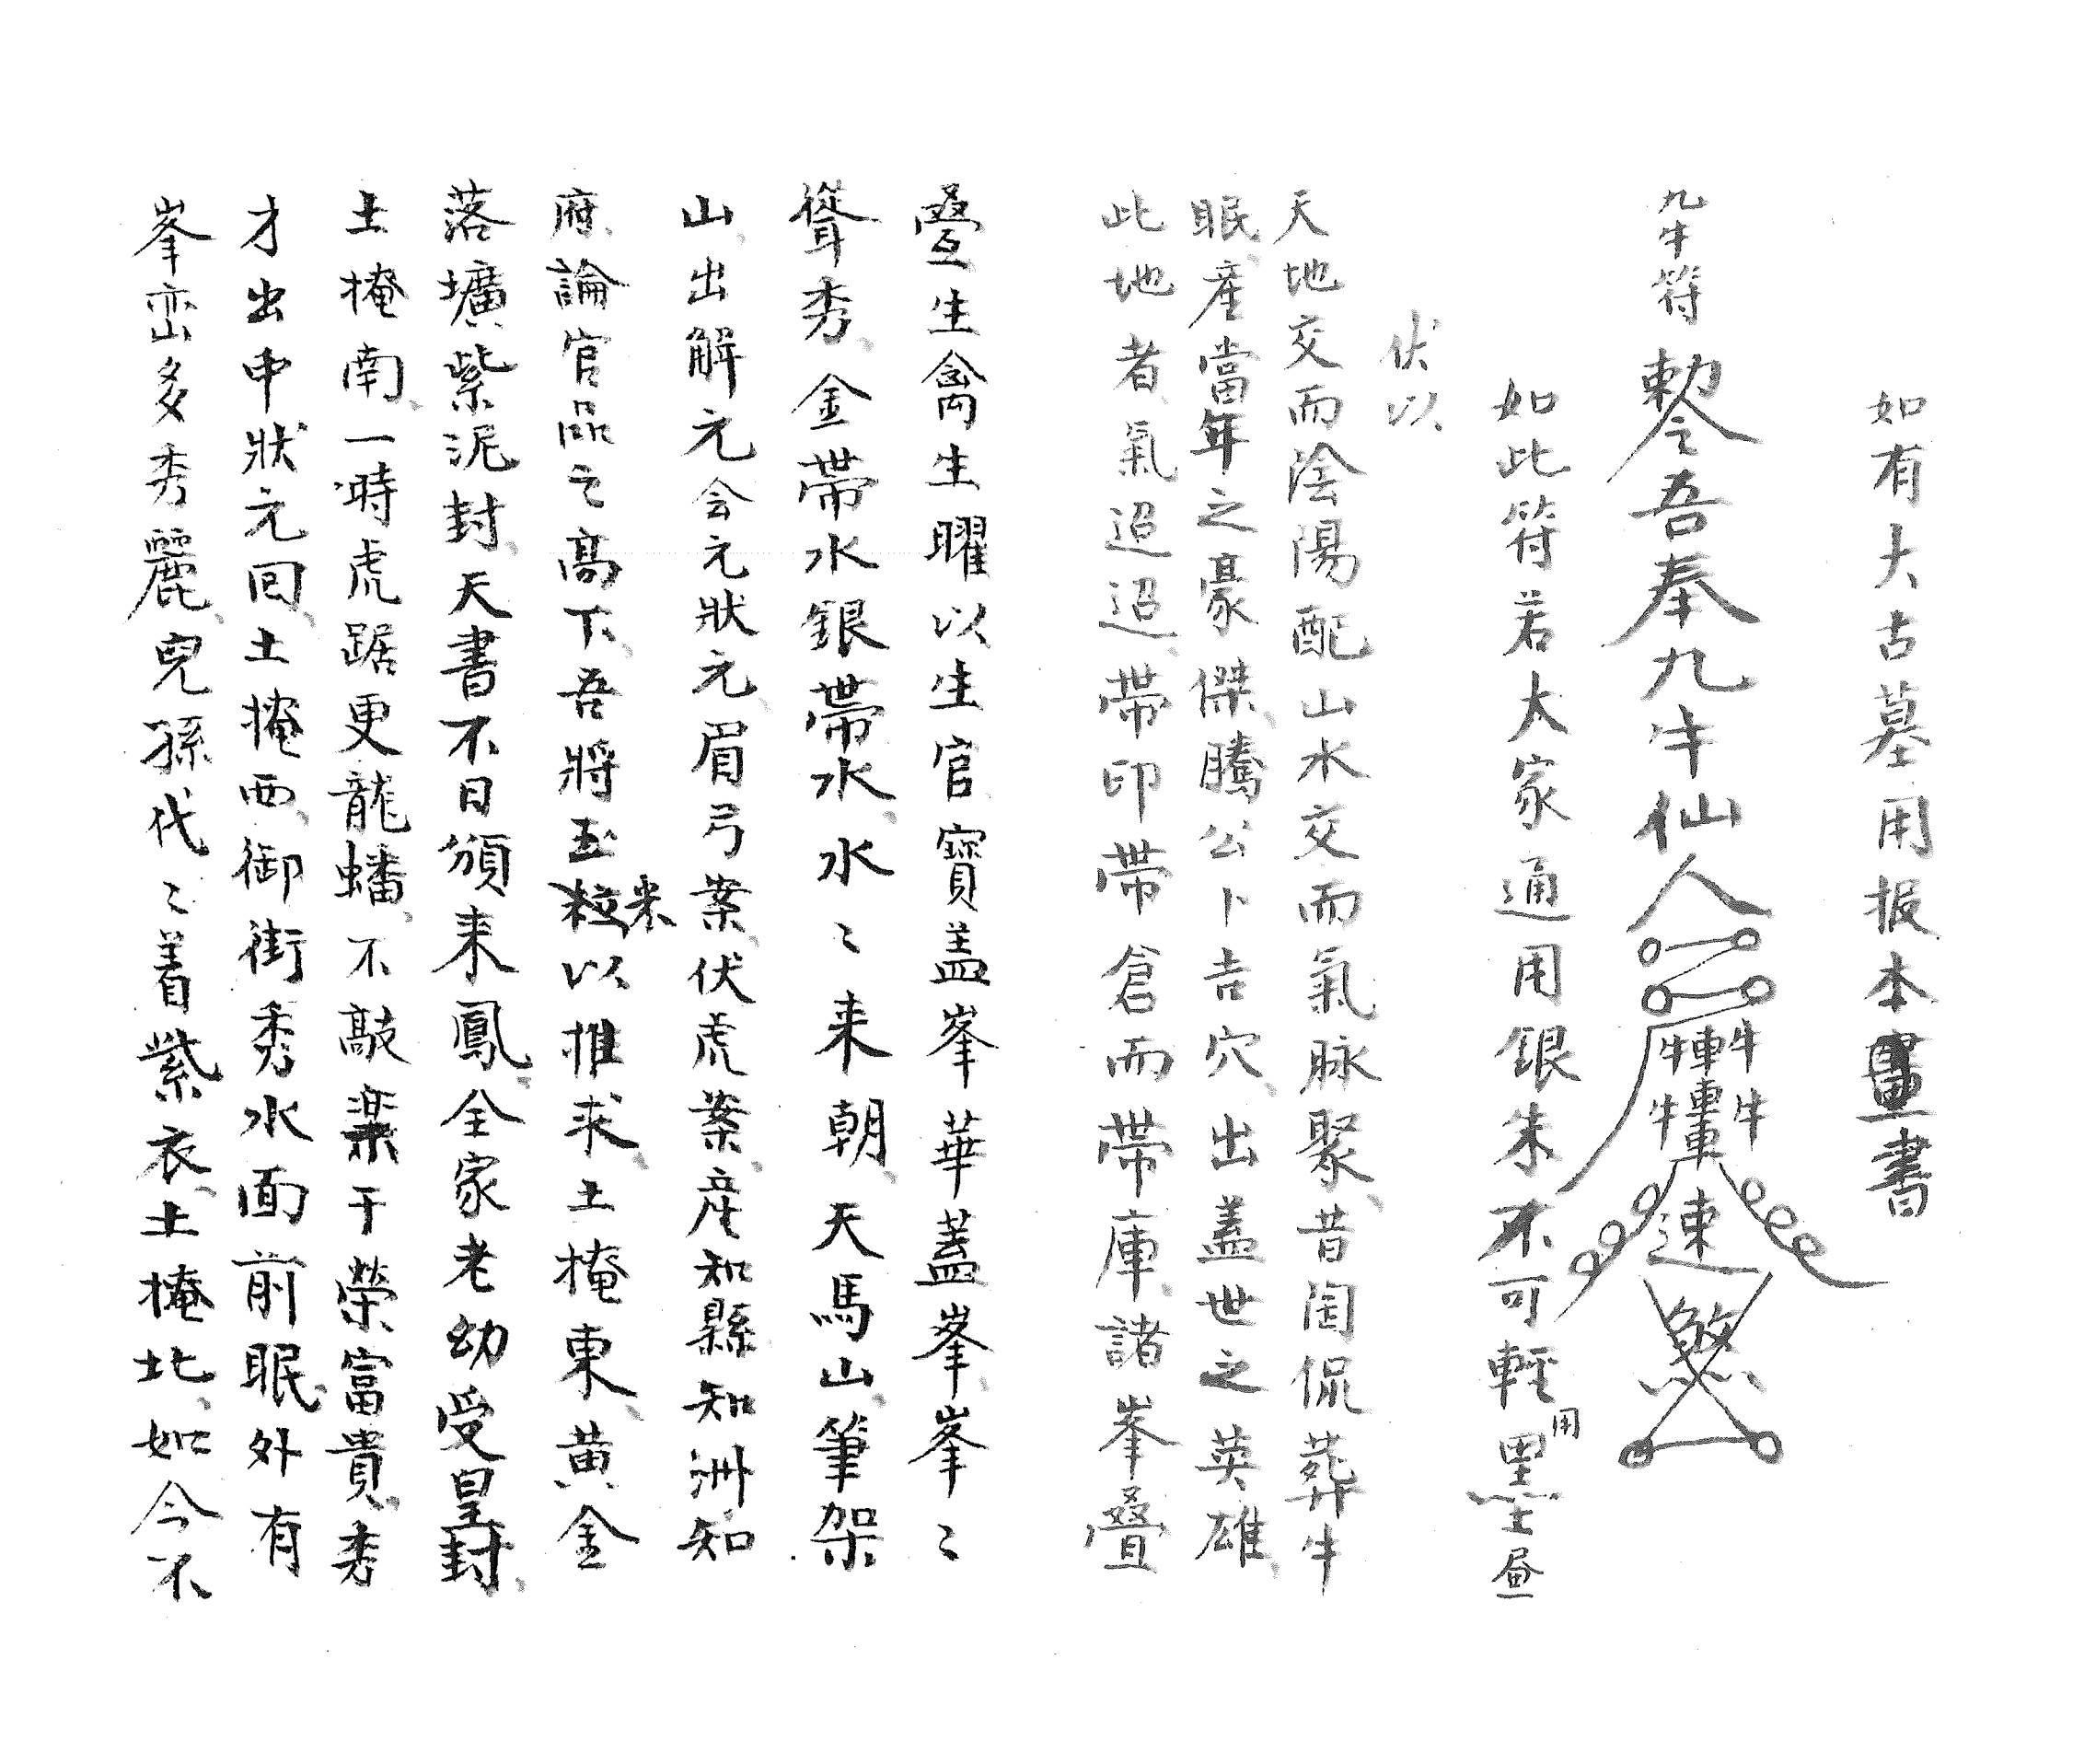 如有大古墓用报本畫書
九牛符
勅令吾奉九牛仙人
牛車牛
牛轟牛
速
煞
如此符若大家通用銀朱不可輕用墨畫
伏以
天地交而陰陽配山水交而氣脉聚、昔陶侃葬牛
眠、產當年之豪傑、騰公卜吉穴、出蓋世之英雄、
此地者、氣迢迢、帶印帶倉而帶庫、諸峯疊
疊生禽生曜以生官寶盖峯華蓋峯、峯〻
聳秀、金帶水銀帶水、水〻来朝、天馬山、筆架
山、出解元会元狀元、眉弓案、伏虎案、產知縣知洲知
府、論官品之高下、吾將五粒米以推求、土掩東、黄金
落壙紫泥封、天書不日頒来鳳、全家老幼受皇封、
土掩南、一時虎踞更龍蟠、不敲棄干榮富貴、秀
才出申狀元回、土掩西、御街秀水面前眠、外有
峯峦多秀麗、兒孫代〻着紫衣、土掩北、如今不